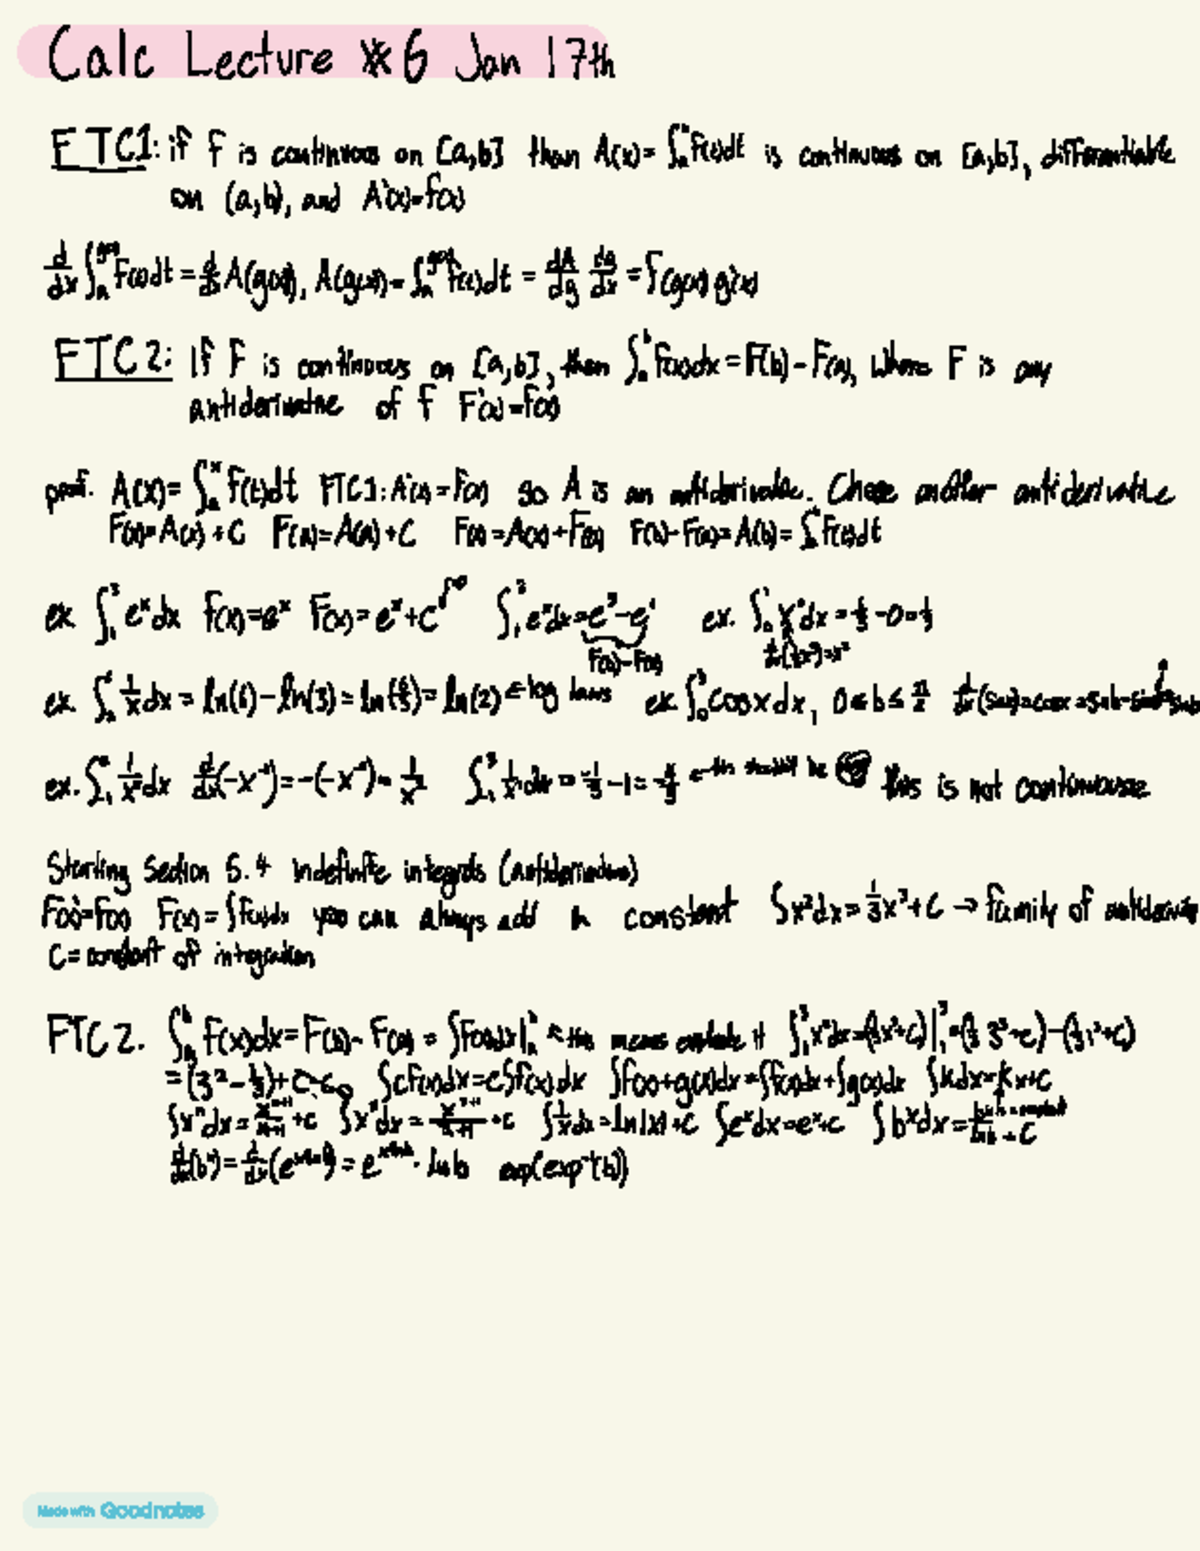 Calc Lecture #6 Jan 17th
FTC1: if f is continuous on [a,b] then A(x)=∫ₐˣf(t)dt is continuous on [a,b], differentiable
on (a,b), and A'(x)=f(x)
d/dx ∫ₐ^g(x) f(t)dt = d/dx A(g(x)), A(g(x))=∫ₐ^g(x) f(t)dt = dA/dg dg/dx = f(g(x)) g'(x)
FTC2: If f is continuous on [a,b], then ∫ₐᵇf(x)dx=F(b)-F(a), where F is any
antiderivative of f F'(x)=f(x)
proof. A(x)=∫ₐˣf(t)dt FTC1: A'(x)=f(x) so A is an antiderivative. Chose another antiderivative
F(x)=A(x)+C F(a)=A(a)+C F(x)=A(x)+F(a) F(b)-F(a)=A(b)=∫ₐᵇf(t)dt
ex ∫₁³eˣdx f(x)=eˣ F(x)=eˣ+C ∫₁³eˣdx=e³-e¹ ex. ∫₀¹x²dx=1/3-0=1/3
F(3)-F(1) d/dx(1/3x³)=x²
ex. ∫₃⁶1/x dx=ln(6)-ln(3)=ln(6/3)=ln(2) ←log laws ex ∫₀ᵇcosxdx, 0≤b≤π/2 d/dx(sinx)=cosx=sinb-sin0=sinb
ex. ∫₋₁³1/x²dx d/dx(-x⁻¹)=-(-x⁻²)=1/x² ∫₋₁³1/x²dx=-1/3-1=-4/3 this is not continuous
Starting Section 5.4 indefinite integrals (antiderivatives)
F'(x)=f(x) F(x)=∫f(x)dx you can always add a constant ∫x²dx=1/3x³+C → family of
C=constant of integration
FTC2. ∫ₐᵇf(x)dx=F(b)-F(a)=∫f(x)dx|ₐᵇ ← this means evaluate it ∫₁³x²dx=(1/3x³+C)|₁³=(1/3 3³+C)-(1/3 1³+C)
=(3²-1/3)+C-C ∫cf(x)dx=c∫f(x)dx ∫f(x)+g(x)dx=∫f(x)dx+∫g(x)dx ∫kdx=kx+C
∫xⁿdx=xⁿ⁺¹/n+1 +C ∫xⁿdx=xⁿ⁺¹/n+1 +C ∫1/x dx=ln|x|+C ∫eˣdx=eˣ+C ∫bˣdx=bˣ/lnb +C
d/dx(bˣ)=d/dx(e^xlnb)=e^xlnb·lnb exp(exp⁻¹(b))
Made with Goodnotes